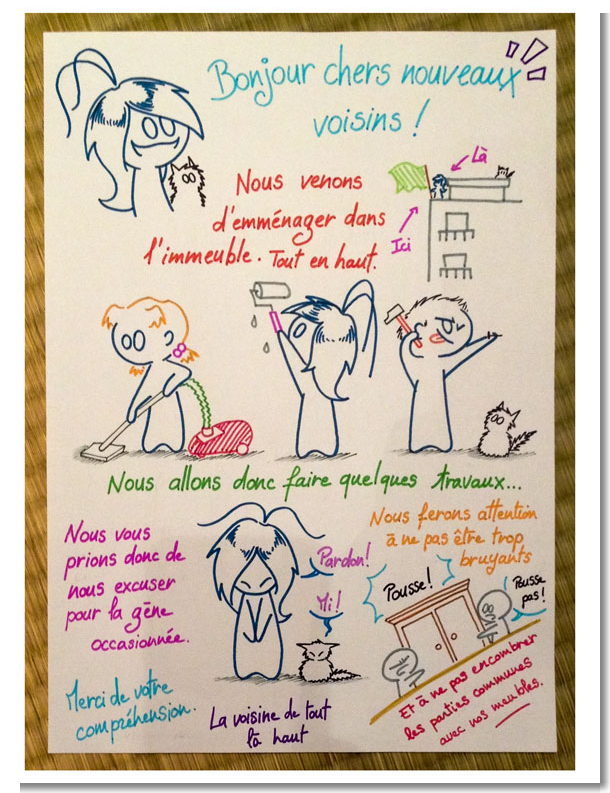 Bonjour chers nouveaux
voisins !
Là
Nous venons
d'emménager dans
l'immeuble. Tout en haut.
Ici
Nous allons donc faire quelques travaux...
Nous vous
prions donc de
nous excuser
pour la gêne
occasionnée.
Pardon!
Mi!
Nous ferons attention
à ne pas être trop
bruyants
Pousse!
Pousse
pas!
Et à ne pas encombrer
les parties communes
avec nos meubles.
Merci de votre
compréhension.
La voisine de tout
là haut